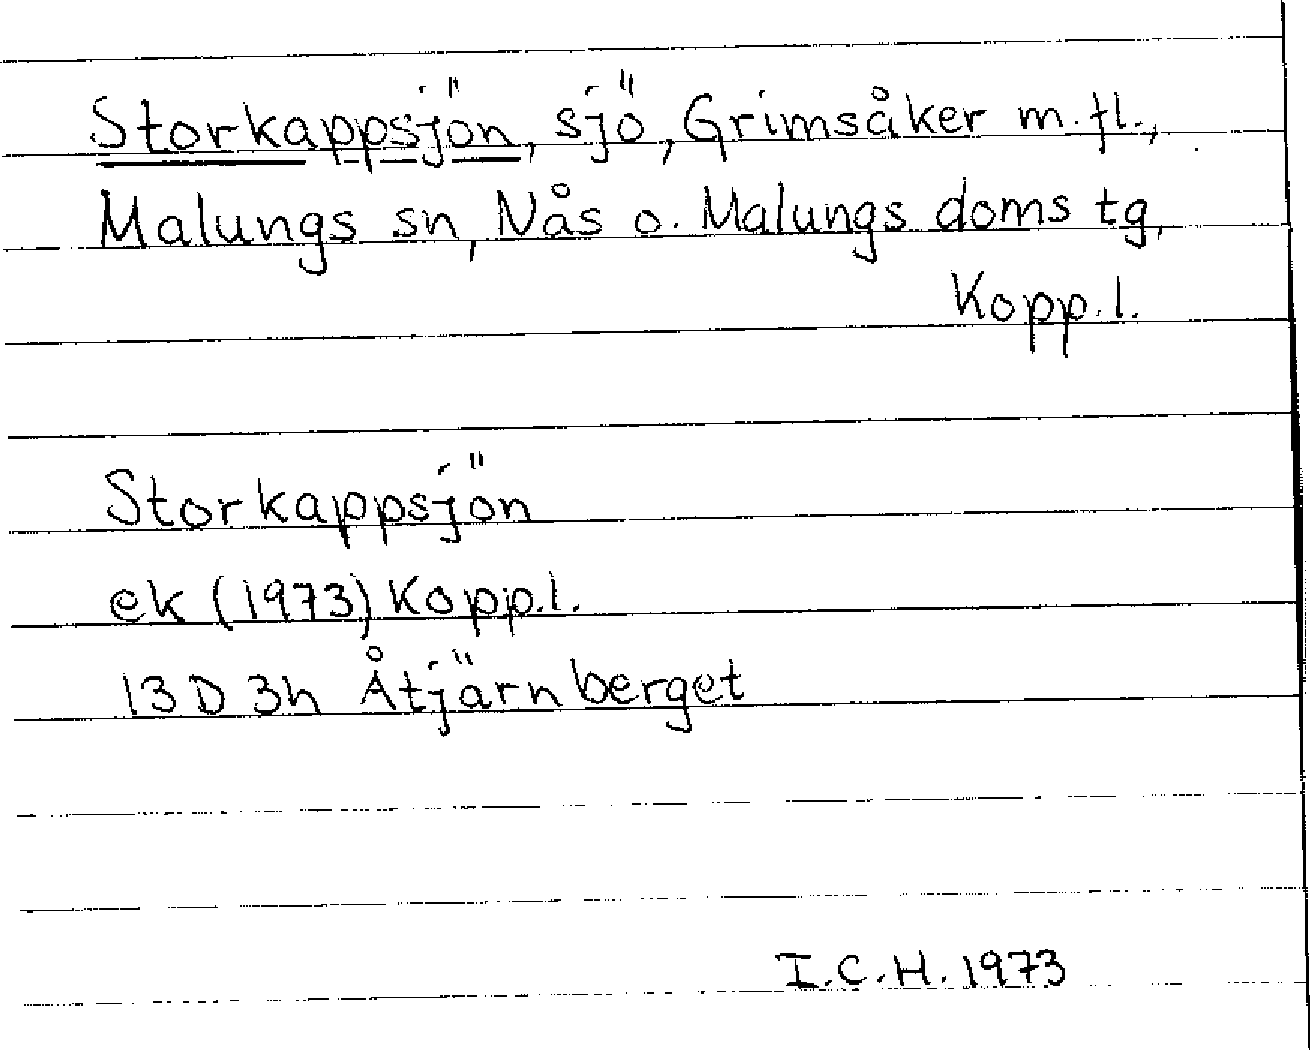 Storkappsjön, sjö, Grimsåker m.fl.,
Malungs sn, Nås o. Malungs doms tg,
Kopp.l.
Storkappsjön
ek (1973) Kopp.l.
13D 3h Åtjärnberget
I.C.H. 1973